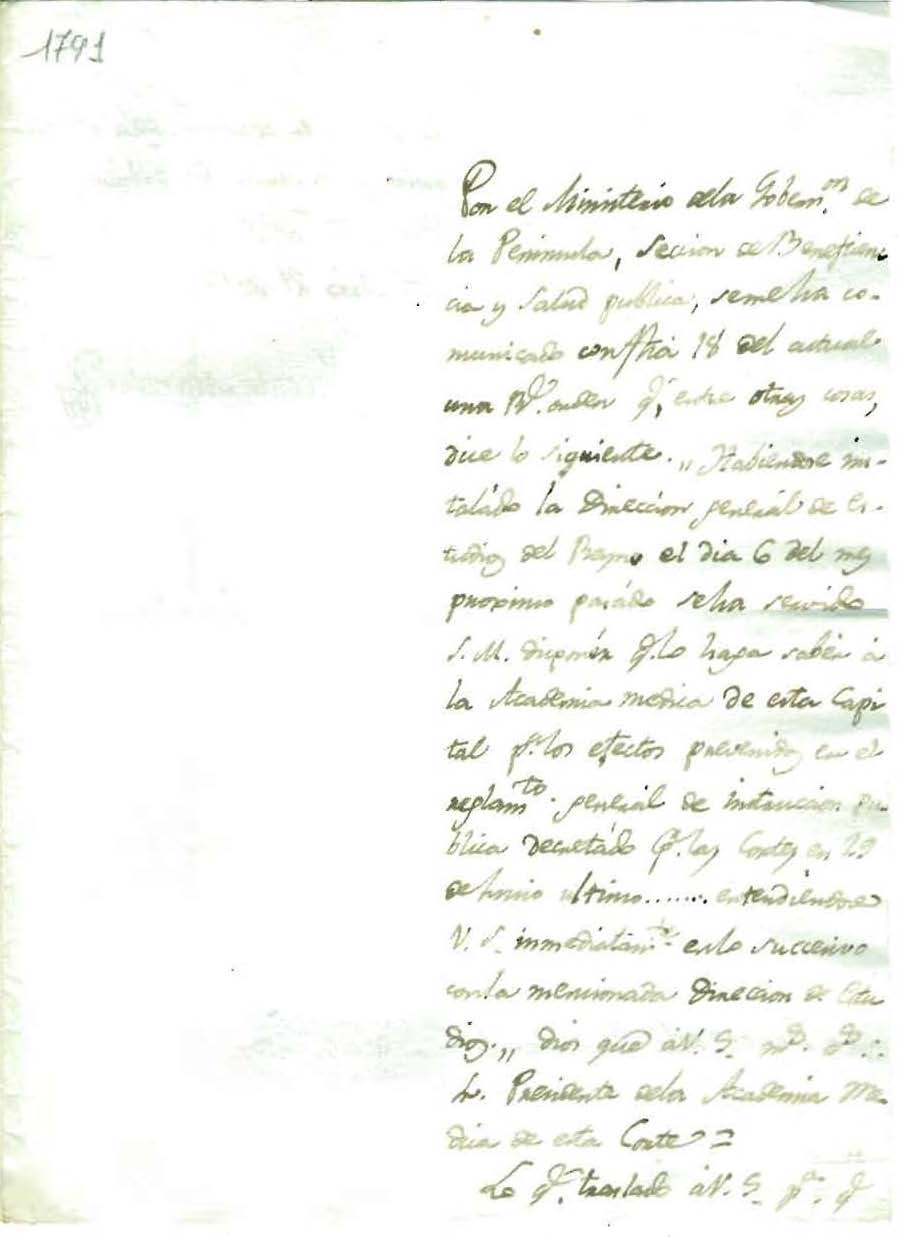 1791
Por el Ministerio dela Gobern.on de
la Peninsula, Seccion de Beneficen
cia y Salud publica, semeha co-
municado con fha 18 del actual
una Rl. orden q.e, entre otras cosas,
dice lo siguiente. „ Habiendose ins-
taládo la Direccion generál de Es-
tudios del Reyno el dia 6 del mes
proximo pasádo seha servido
S. M. disponér q.e lo haga sabér á
la Academia medica de esta Capi
tal p.a los efectos prevenidos en el
reglam.to generál de instruccion pu-
blica decretádo p.r las Cortes en 29
de Junio ultimo....... entendiendose
V. S. inmediatam.te enlo succesivo
conla mencionada Direccion de Estu
dios. „ Dios gue á V. S. m.s a.s =
Sr. Presidente dela Academia Me-
dica de esta Corte =
Lo q.e traslado á V. S. p.a q.e